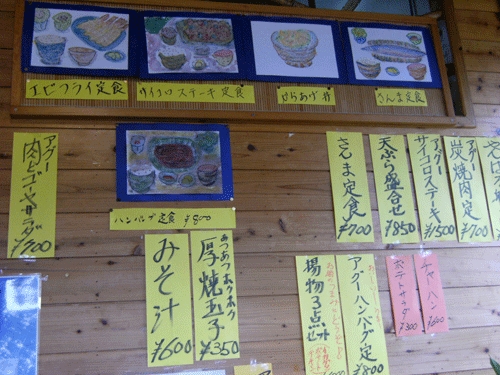 エビフライ定食
サイコロステーキ定食
からあげ丼
さんま定食
ハンバーグ定食 ¥800
アグー
肉とゴーヤサラダ
¥700
みそ汁
¥600
あつあつホクホク
厚焼玉子
¥350
さんま定食
¥700
天ぷら盛合せ
¥850
アグー
サイコロステーキ
¥1500
アグー
炭焼肉定
¥700
揚物3点セット
アグーハンバーグ定
¥800
ポテトサラダ
¥300
チャーハン
¥600